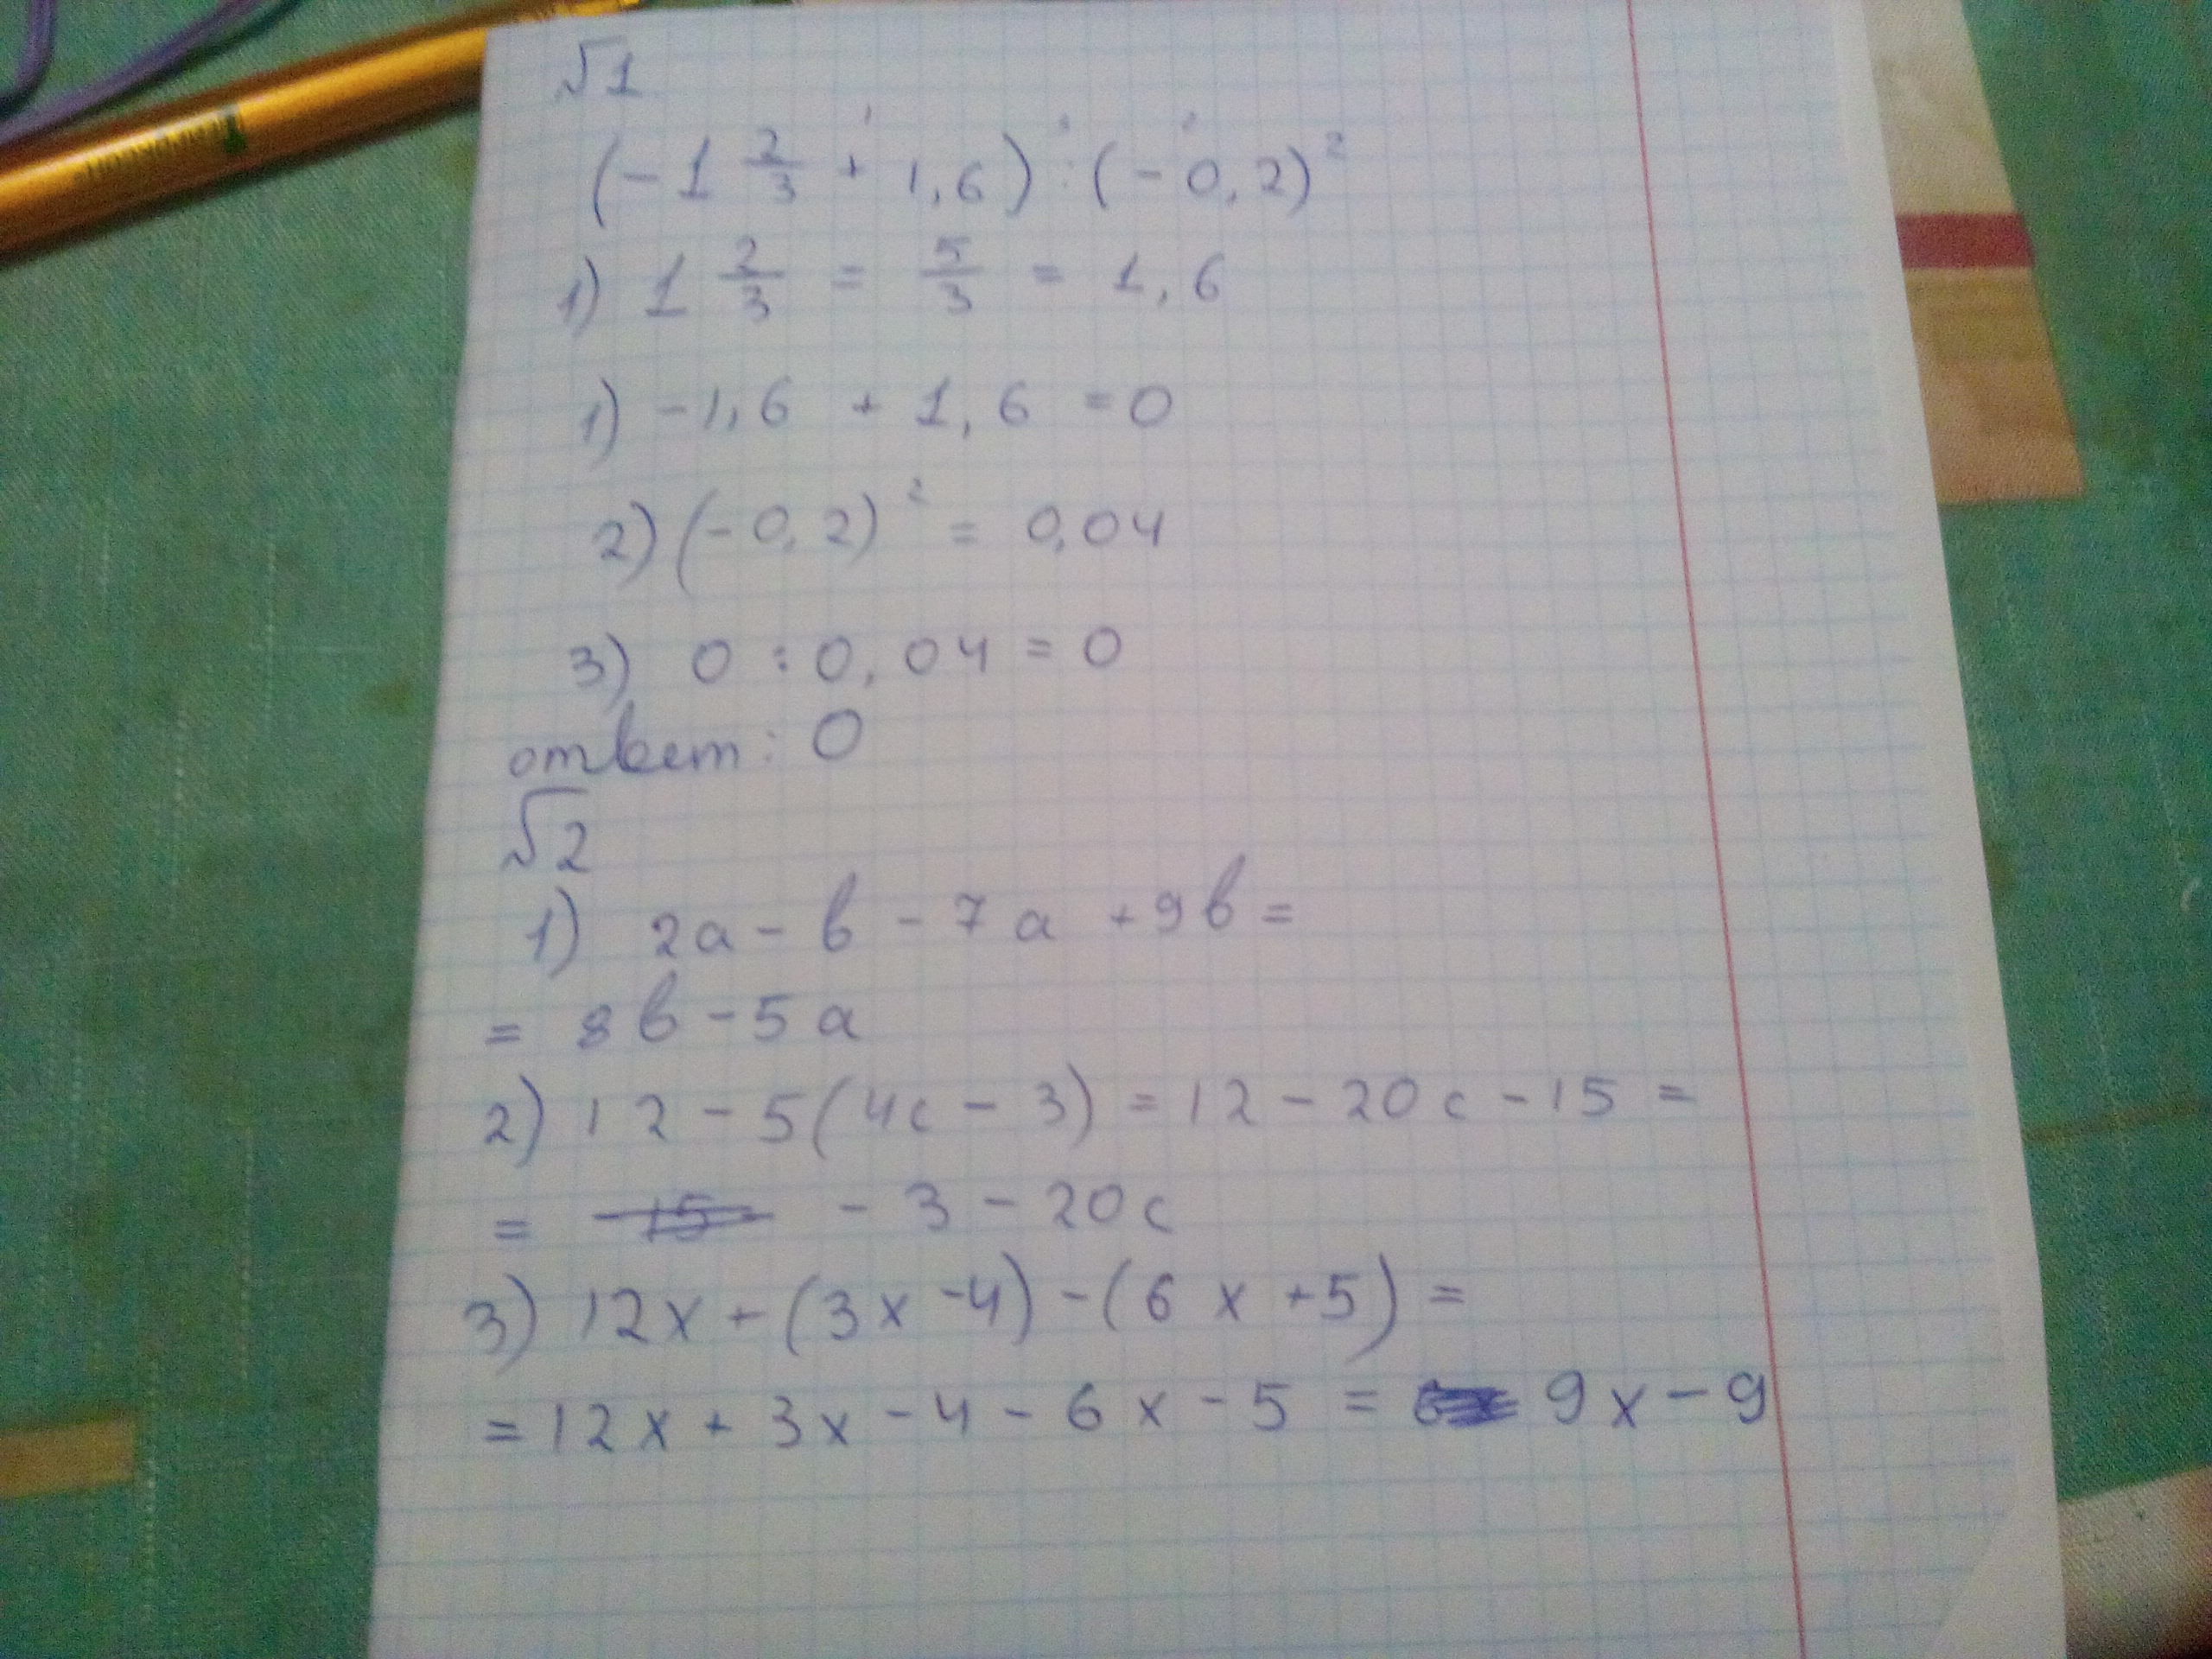 √1
(-1 2/3 + 1,6) : (-0,2)²
1) 1 2/3 = 5/3 = 1,6
1) -1,6 + 1,6 = 0
2) (-0,2)² = 0,04
3) 0 : 0,04 = 0
ответ: 0
√2
1) 2a - b - 7a + 9b =
= 8b - 5a
2) 12 - 5(4c - 3) = 12 - 20c - 15 =
= - 3 - 20c
3) 12x + (3x - 4) - (6x + 5) =
= 12x + 3x - 4 - 6x - 5 = 9x - 9